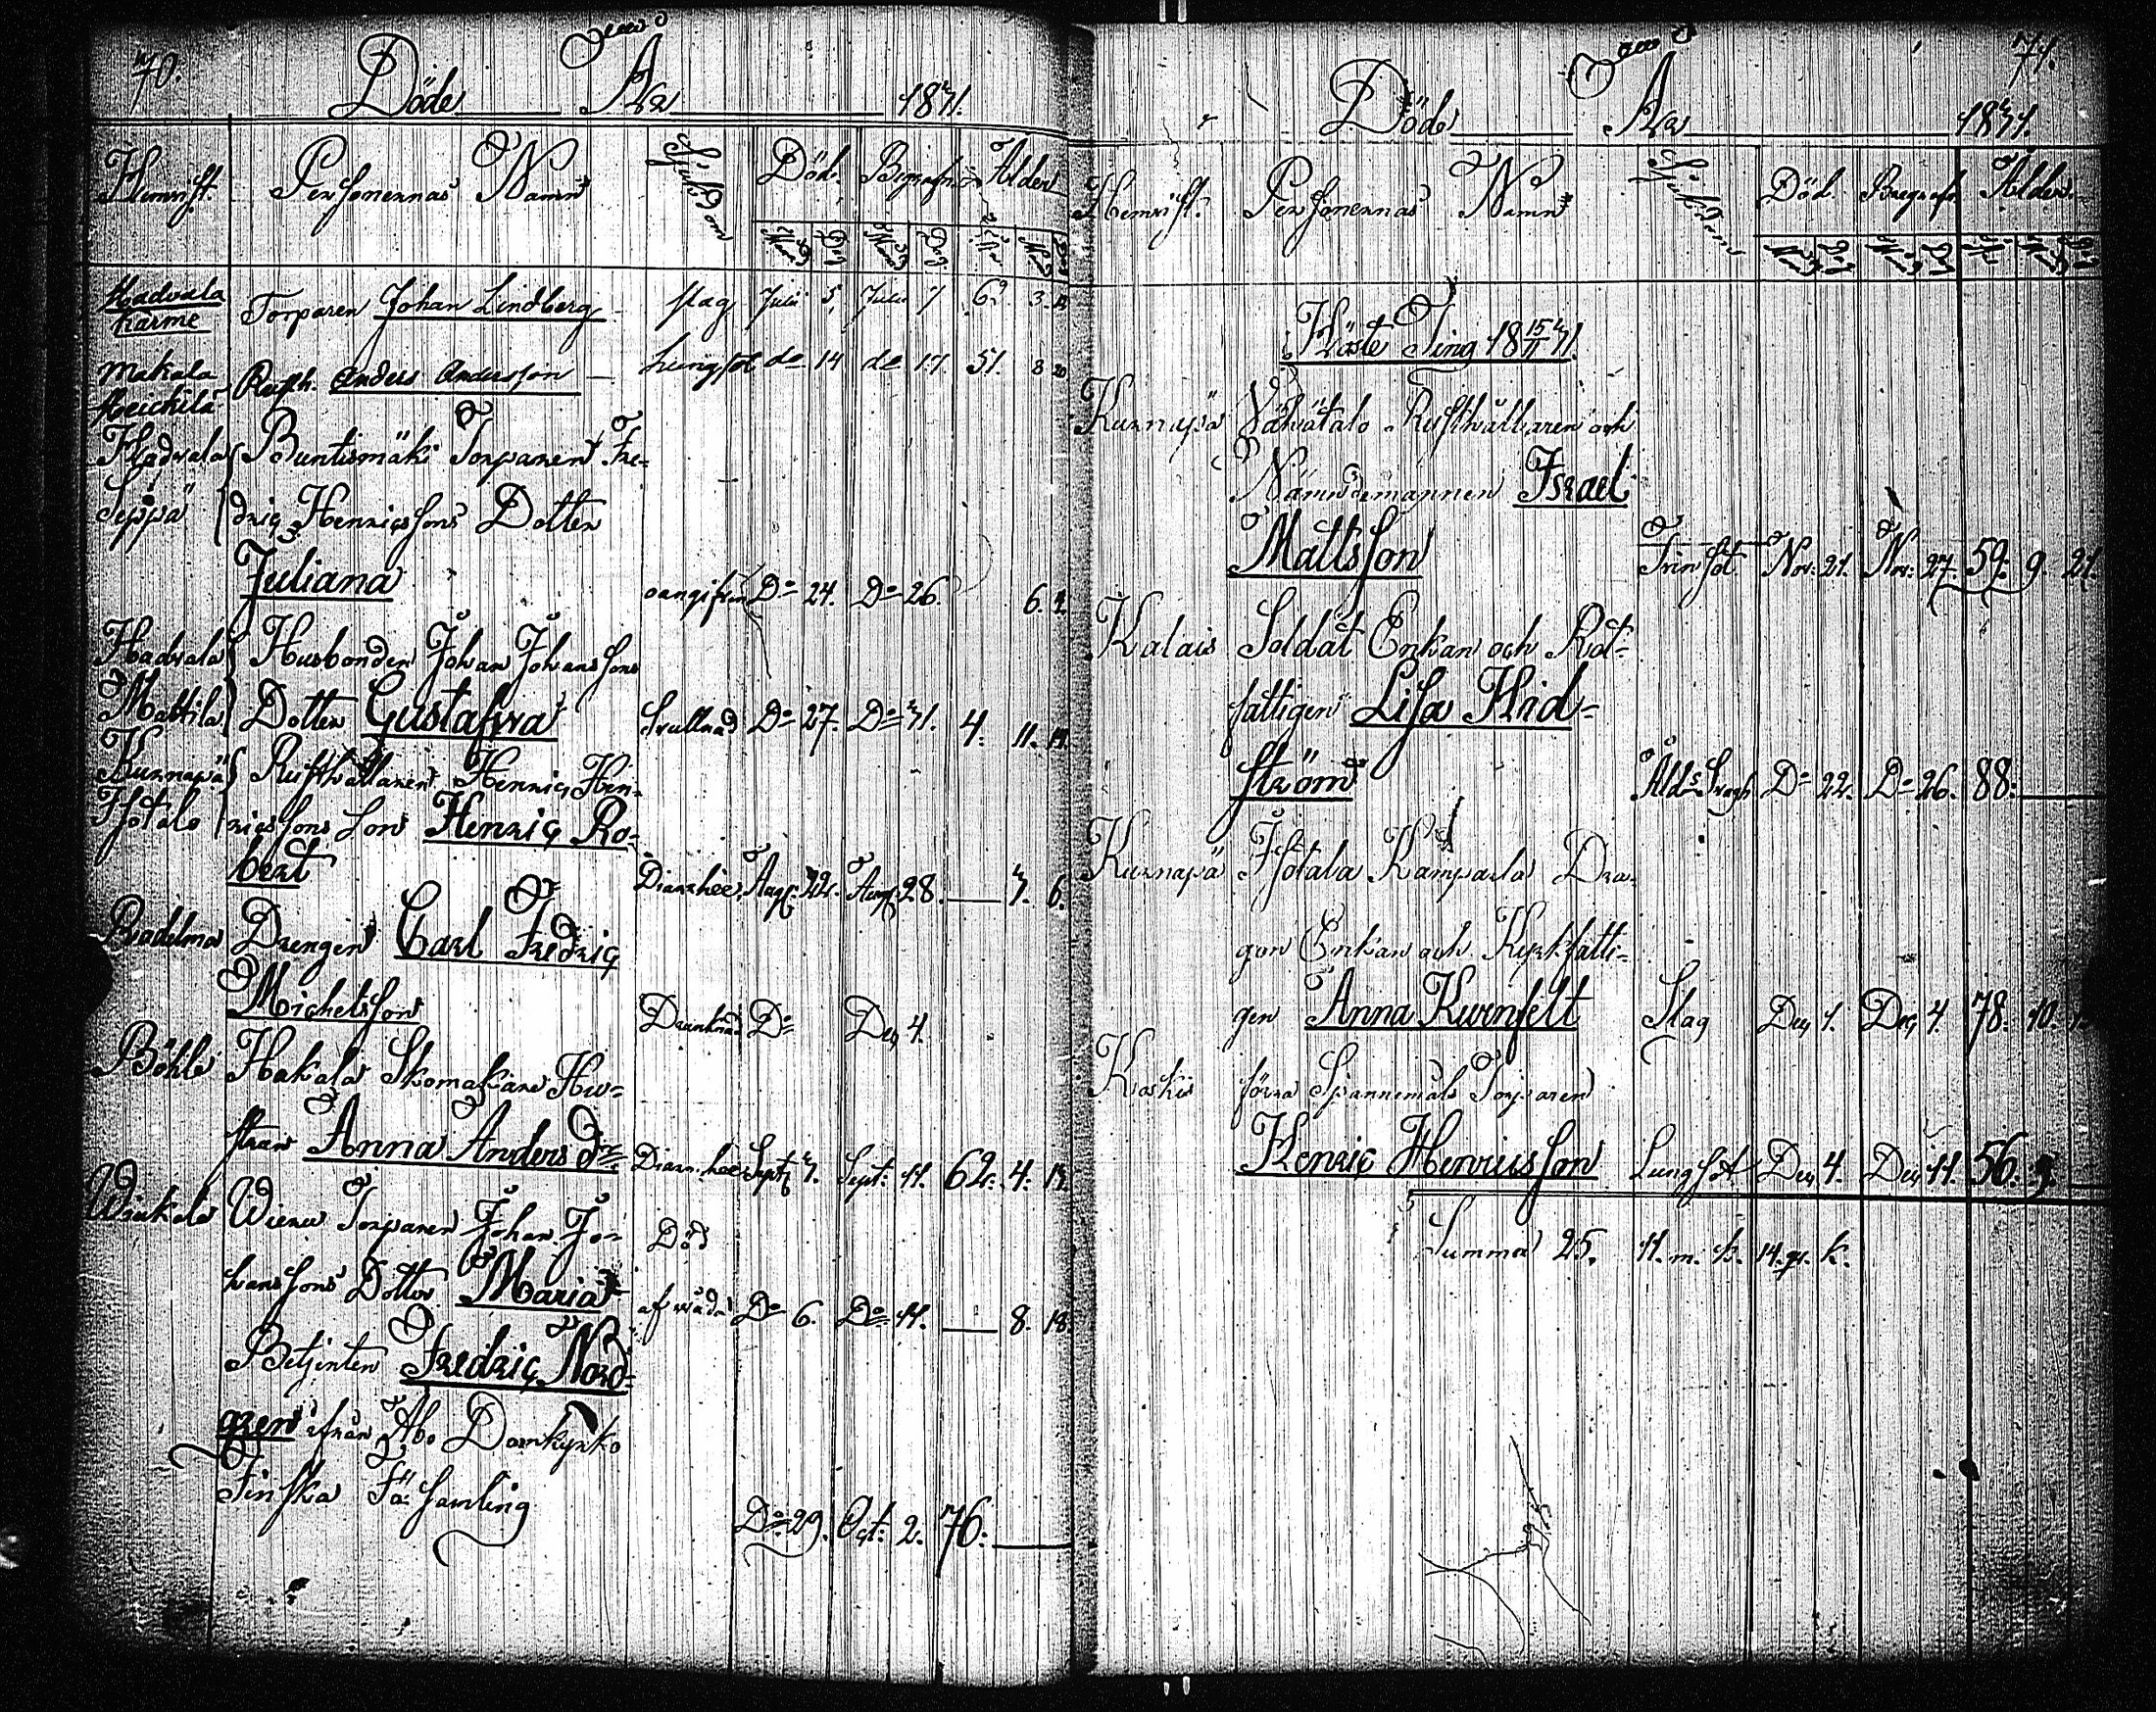 70.
Döde Åra 1831.
Hemvist. Personernas Namn Sjukdom Död. Begrafn: Ålder
Månad Dag Månad Dag År Mån Dag
Hadvala
Karme Torparen Johan Lindberg slag Julii 5 Julii 7 69 3.
Makala
Heickilä Rusth. Anders Andersson lungsot do 14 do 17 51. 8 20
Hadvala Buntismäki Torparen Fre=
Seppä dric Henricssons Dotter
Juliana oangifven Do 24. Do 26. 6. 2.
Hadvala Husbonden Johan Johanssons
Mattila Dotter Gustafwa Do 27. Do 31. 4. 11. 14.
Kurnapä Rusthållaren Henric Hen-
Isotalo ricssons Son Henric Ro-
bert Diarrhee Aug: 22. Aug: 28. 7. 6.
Badelma Drengen Carl Fredric
Michelsson Drunknad Do Dec 4.
Böhle Hakala Skomakare Hu=
strun Anna Anders Dr Diarrhee Sept 7. Sept: 11. 62. 4. 14.
Wiukala Torparen Johan Jo= Död
hanssons Dotter Maria af våda Do 6. Do 11. 8. 18.
Betjenten Fredric Nord=
gren ifrån Åbo Domkyrko
Finska Församling
Do 29. Oct: 2. 76.
71.
Döde Åra 1831.
Hemvist. Personernas Namn Sjukdom Död. Begrafn. Ålder.
Höste Ting 18 15/11 31.
Kurnapä Vähätalo Rusthållaren och
Nämndemannen Israel
Mattsson Tvinsot Nov: 21. Nov: 27 59. 9. 21.
Kalais Soldat Enkan och Rot=
fattigen Lisa Hid=
ström Do 22. Do 26. 88.
Kurnapä Isotala Kamparla Dra-
gon Enkan och Kyrkfatti=
gen Anna Kurnfelt Slag Dec 1. Dec 4. 78. 10.
Koskis förra Spannemåls Torparen
Henric Henricsson Lungsot Dec 4. Dec 11. 56. 9.
Summa 25. 11. m. k. 14. qv. k.